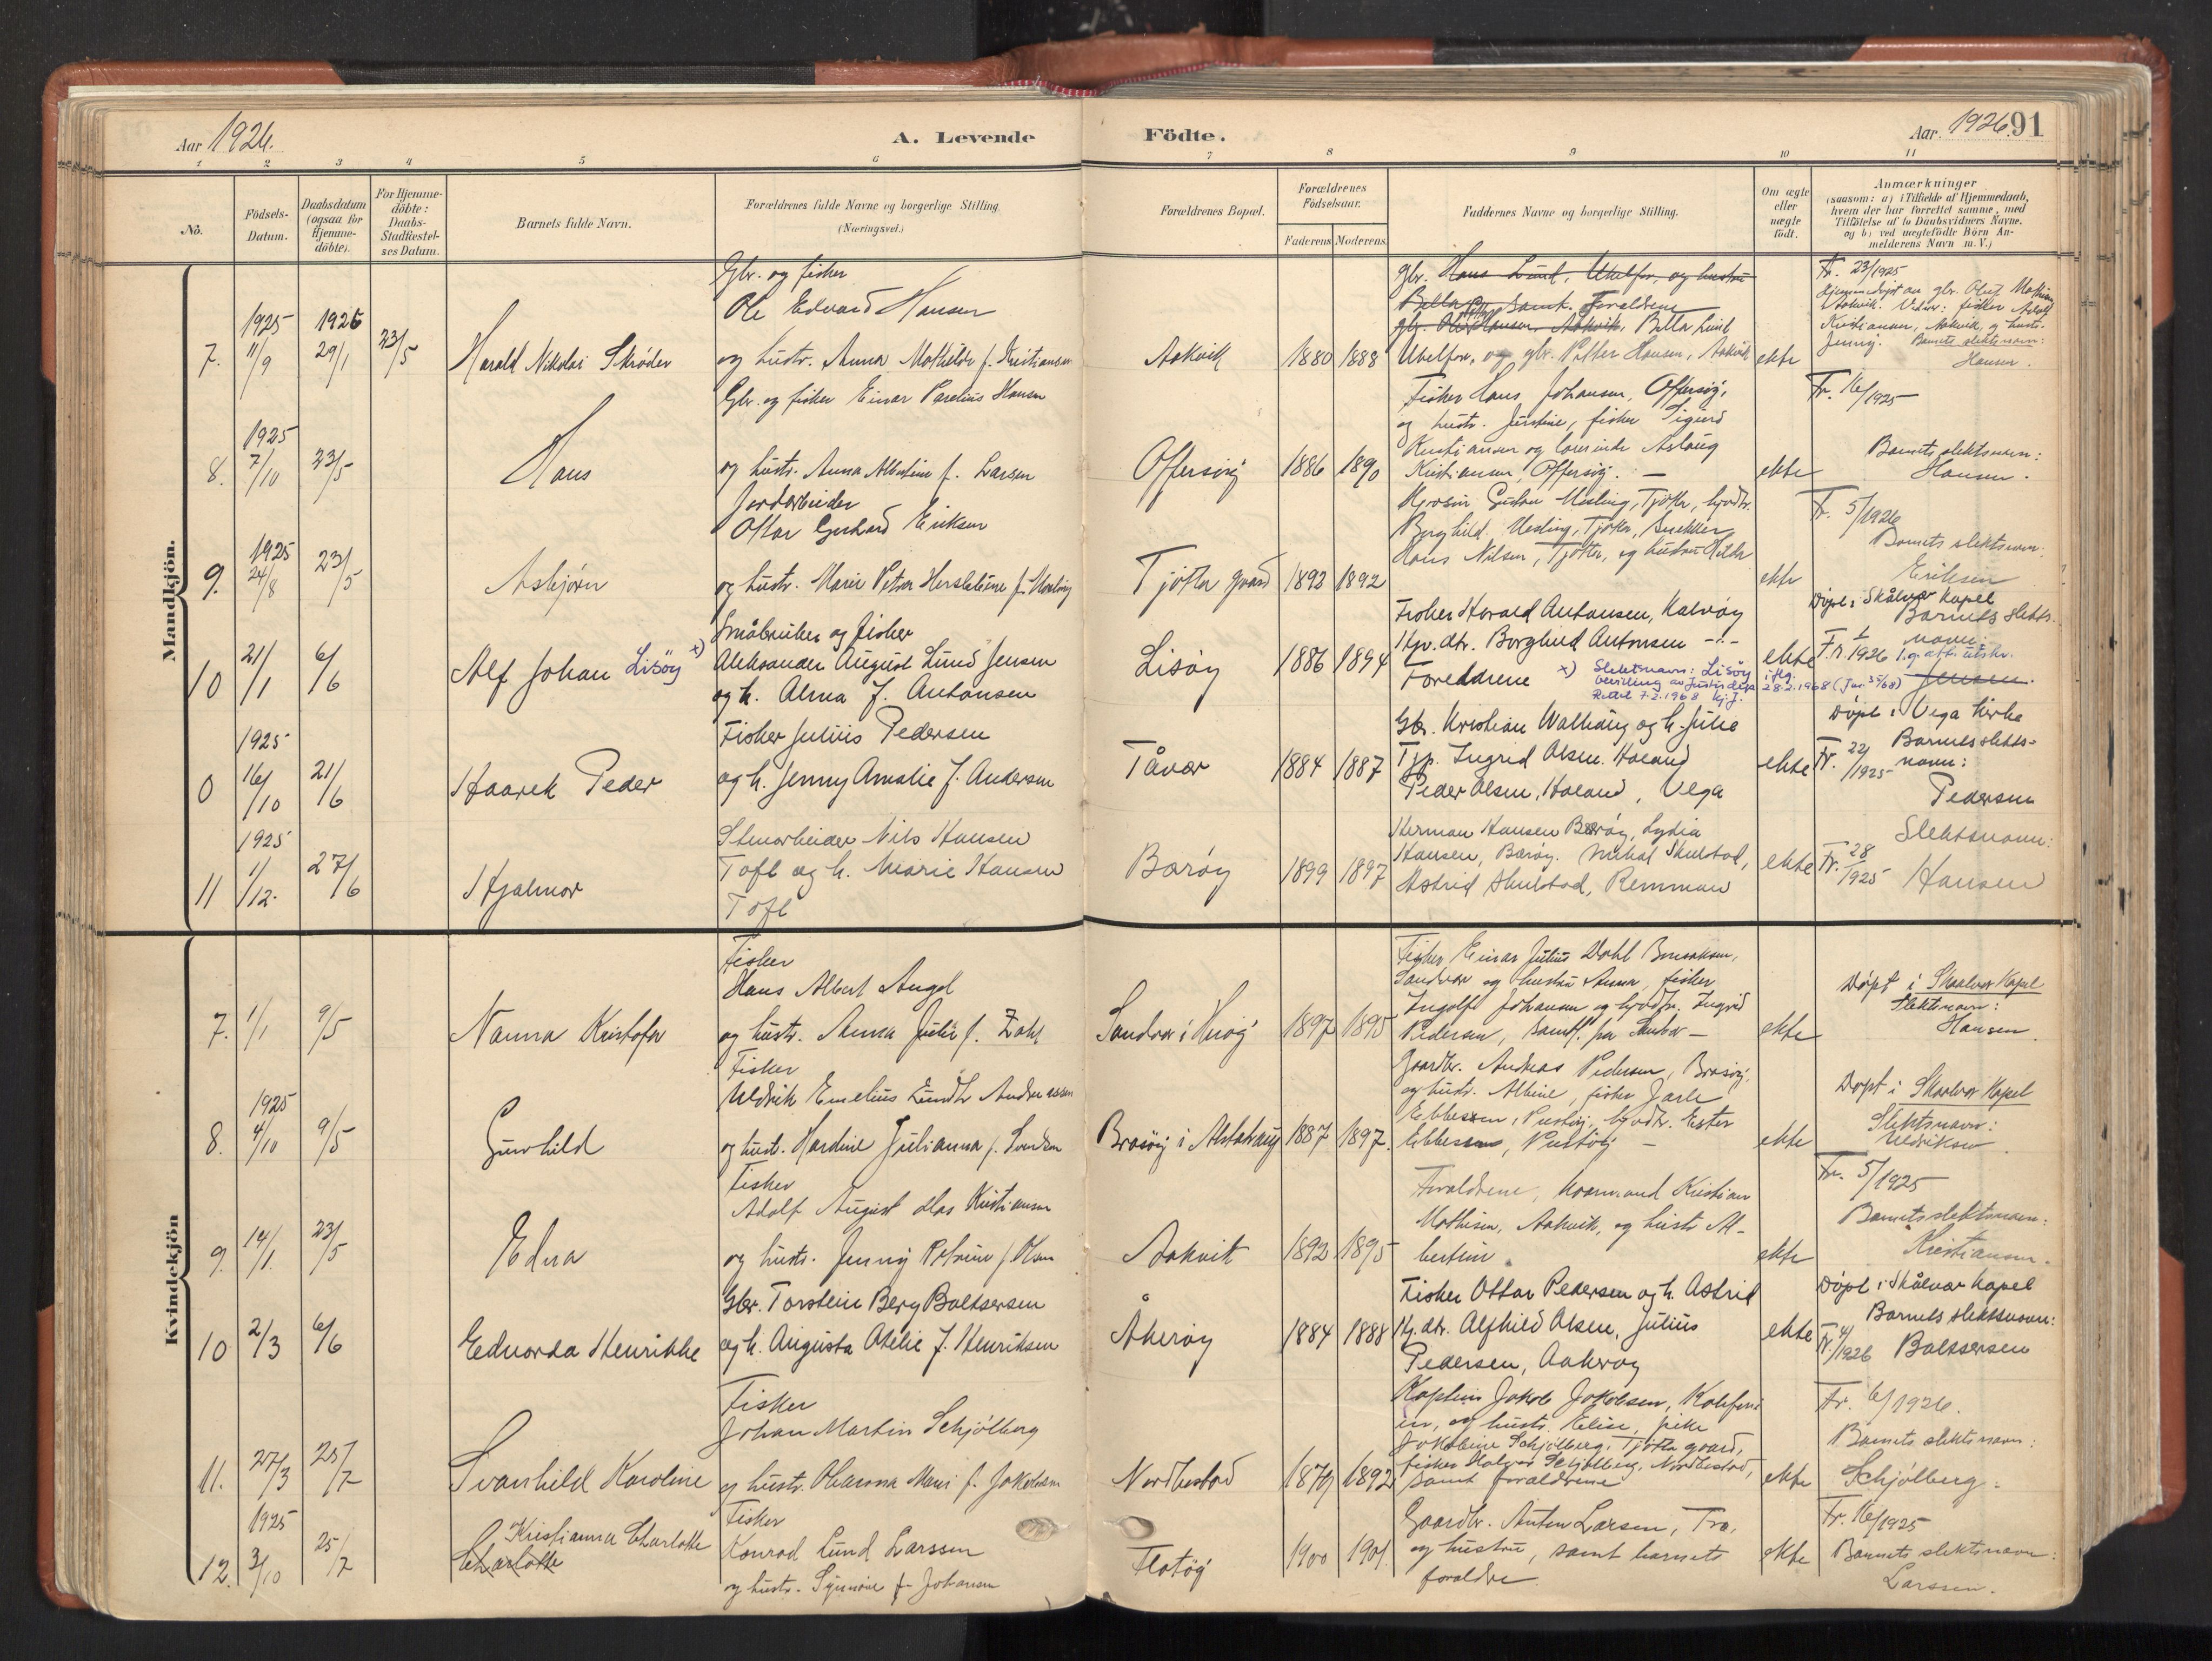 Aar 1926.
A. Levende
Födte.
Aar. 1926. 91
1 2 3 4 5 6 7 8 9 10 11
No.
Födsels-
Datum.
Daabsdatum
(ogsaa for
Hjemme-
döbte).
For Hjemme-
döbte:
Daabs-
Stadfæstel-
ses Datum.
Barnets fulde Navn.
Forældrenes fulde Navne og borgerlige Stilling
(Næringsvei.)
Forældrenes Bopæl.
Forældrenes
Födselsaar.
Faderens Moderens
Faddernes Navne og borgerlige Stilling.
Om ægte
eller
uægte
födt.
Anmærkninger
(saasom: a) i Tilfælde af Hjemmedaab,
hvem der har forrettet samme, med
Tilföielse af to Daabsvidners Navne.
og b) ved uægtefödte Börn An-
melderens Navn m. V.)
Mandkjön.
7.
1925
11/9
1926
29/1
23/5
Harald Nikolai Skrøder
Gbr. og fisker
Ole Edvard Hansen
og hustr. Anna Mathilde f. Kristiansen
Aakvik
1880 1888
gbr. Hans Lund, Utelfor, og hustru
Bella samt Forældrene
gbr. Ole Hansen, Aakvik, Bella Lund
Utelfor, og gbr. Petter Hansen, Aakvik
ekte
Fr. 23/1925
Hjemmedøpt av gbr. Oluf Mathisen
Aakvik. Vidner: fisker Adolf
Kristiansen, Aakvik, og hustr.
Jenny. Barnets slektsnavn:
Hansen.
8.
1925
7/10
23/5
Hans
Gbr. og fisker Einar Parelius Hansen
og hustr. Anna Albertine f. Larsen
Offersøy
1886 1890
Fisker Hans Johansen, Offersøy,
og hustr. Justine, fisker Sigurd
Kristiansen og Aslaug
Kristiansen, Offersøy. —
ekte
Fr. 16/1925
Barnets slektsnavn:
Hansen.
9.
1925
24/8
23/5
Asbjørn
Jordarbeider
Ottar Gerhard Eriksen
og hustr. Marie Petra f.
Tjøtta gaard
1892 1892
Gustav Tjøtta,
Borghild Tjøtta, Snekker
Hans Nilsen, Tjøtta, og hustru
ekte
Fr. 5/1926
Barnets slektsnavn:
Eriksen
10
21/1
6/6
Alf Johan Lisöy x)
Småbruker og fisker
Aleksander August Lund Jensen
og h. Alma f. Antonsen
Lisöy
1886 1894
Fisker Harald Antonsen, Kalvöy
Hgv. dtr. Borghild Antonsen -"-
Foreldrene x) Slektsnavn: Lisöy iflg.
bevilling av Justisdep. 28.2.1968 (Jnr. 35/68)
Rettet 7.2.1968
ekte
Döpt i Skålvær Kapel
Barnets slekts-
navn:
F.n. 1/1926
Jensen.
0
1925
16/10
21/6
Haarek Peder
Fisker Julius Pedersen
og h. Jenny Amalie f. Andersen
Tåvær
1884 1887
Gbr. Kristian Walhaug og h. Julie
Tjp. Ingrid Olsen. Holand
Peder Olsen, Holand, Vega
ekte
Döpt i Vega Kirke
Barnets slekts-
navn:
Fr. 22/1925
Pedersen
11
1925
1/12.
27/6
Hjalmar
Stenarbeider Nils Hansen
Toft og h. Marie Hansen
Toft
Baröy
1899 1897
Herman Hansen Baröy, Lydia
Hansen, Baröy. Mikal Skulstad,
Astrid Skulstad, Remman
ekte
Slektsnavn:
Fr. 28/1925
Hansen
Kvindekjön
7.
1/1
9/5
Nanna Kristofa
Fisker
Hans Albert Angel
og hustr. Anna Julie f. Zahl
Sandvær i Herøy
1897 1895
Fisker Einar Julius Dahl
Sandvær og hustru Anna, fisker
Ingolf Johansen og Ingrid
Pedersen, samtl. fra Sandvær —
ekte
Døpt i Skaalvær Kapel
Slektsnavn:
Hansen
8.
1925
4/10
9/5
Gunhild
Fisker
Uldrik Emelius Lundh Andreassen
og hustr. Hardine Julianna f. Svendsen
Brasøy i Alstahaug
1887 1897.
Gaardbr. Andreas Pedersen, Brasøy,
og hustr. Albine, fisker Jarle
Ebbesen, Husløy, Ester
Ebbesens, Husløy —
ekte
Døpt i Skaalvær Kapel
Slektsnavn:
Uldriksen
9.
14/1.
23/5
Edna
Fisker
Adolf August Kristiansen
og hustr. Jenny Petrine f. Olsen
Aakvik
1892 1895
Foreldrene, Kaarmand Kristian
Mathisen, Aakvik, og hustr. Al-
bertine.
ekte
Fr. 5/1925
Barnets slektsnavn:
Kristiansen.
10
2/3
6/6
Eduarda Henrikke
Gbr. Torstein Berg Baltsersen
og h. Augusta Otelie f. Henriksen
Åkeröy
1884 1888
Fisker Ottar Pedersen og h. Astrid
Hg. dtr. Alfhild Olsen, Julius
Pedersen, Aakeröy
ekte
Döpt i Skålvær Kapel
Barnets slektsnavn:
Fr. 4/1926 Baltsersen
11.
27/3
25/7
Svanhild Karoline
Fisker
Johan Martin Schjølberg
og hustr. Oharna Marie f. Jakobsen
Nordbostad
1879 1892
Kaptein Jakob Jakobsen,
og hustr. Elise, pike
Jakobine Schjølberg, Tjøtta gaard,
fisker Halvor Schjølberg, Nordbostad,
samt foreldrene
ekte
Fr. 6/1926.
Barnets slektsnavn:
Schjølberg.
12.
1925
3/10
25/7
Kristianna Charlotte
Charlotte
Fisker
Konrad Lund Larssen
og hustr. Synnøve f. Johansen
Flatøy
1900 1901.
Gaardbr. Anton Larsen, Tro,
og hustru, samt barnets
foreldre
ekte
Fr. 16/1925
Barnets slektsnavn:
Larssen.